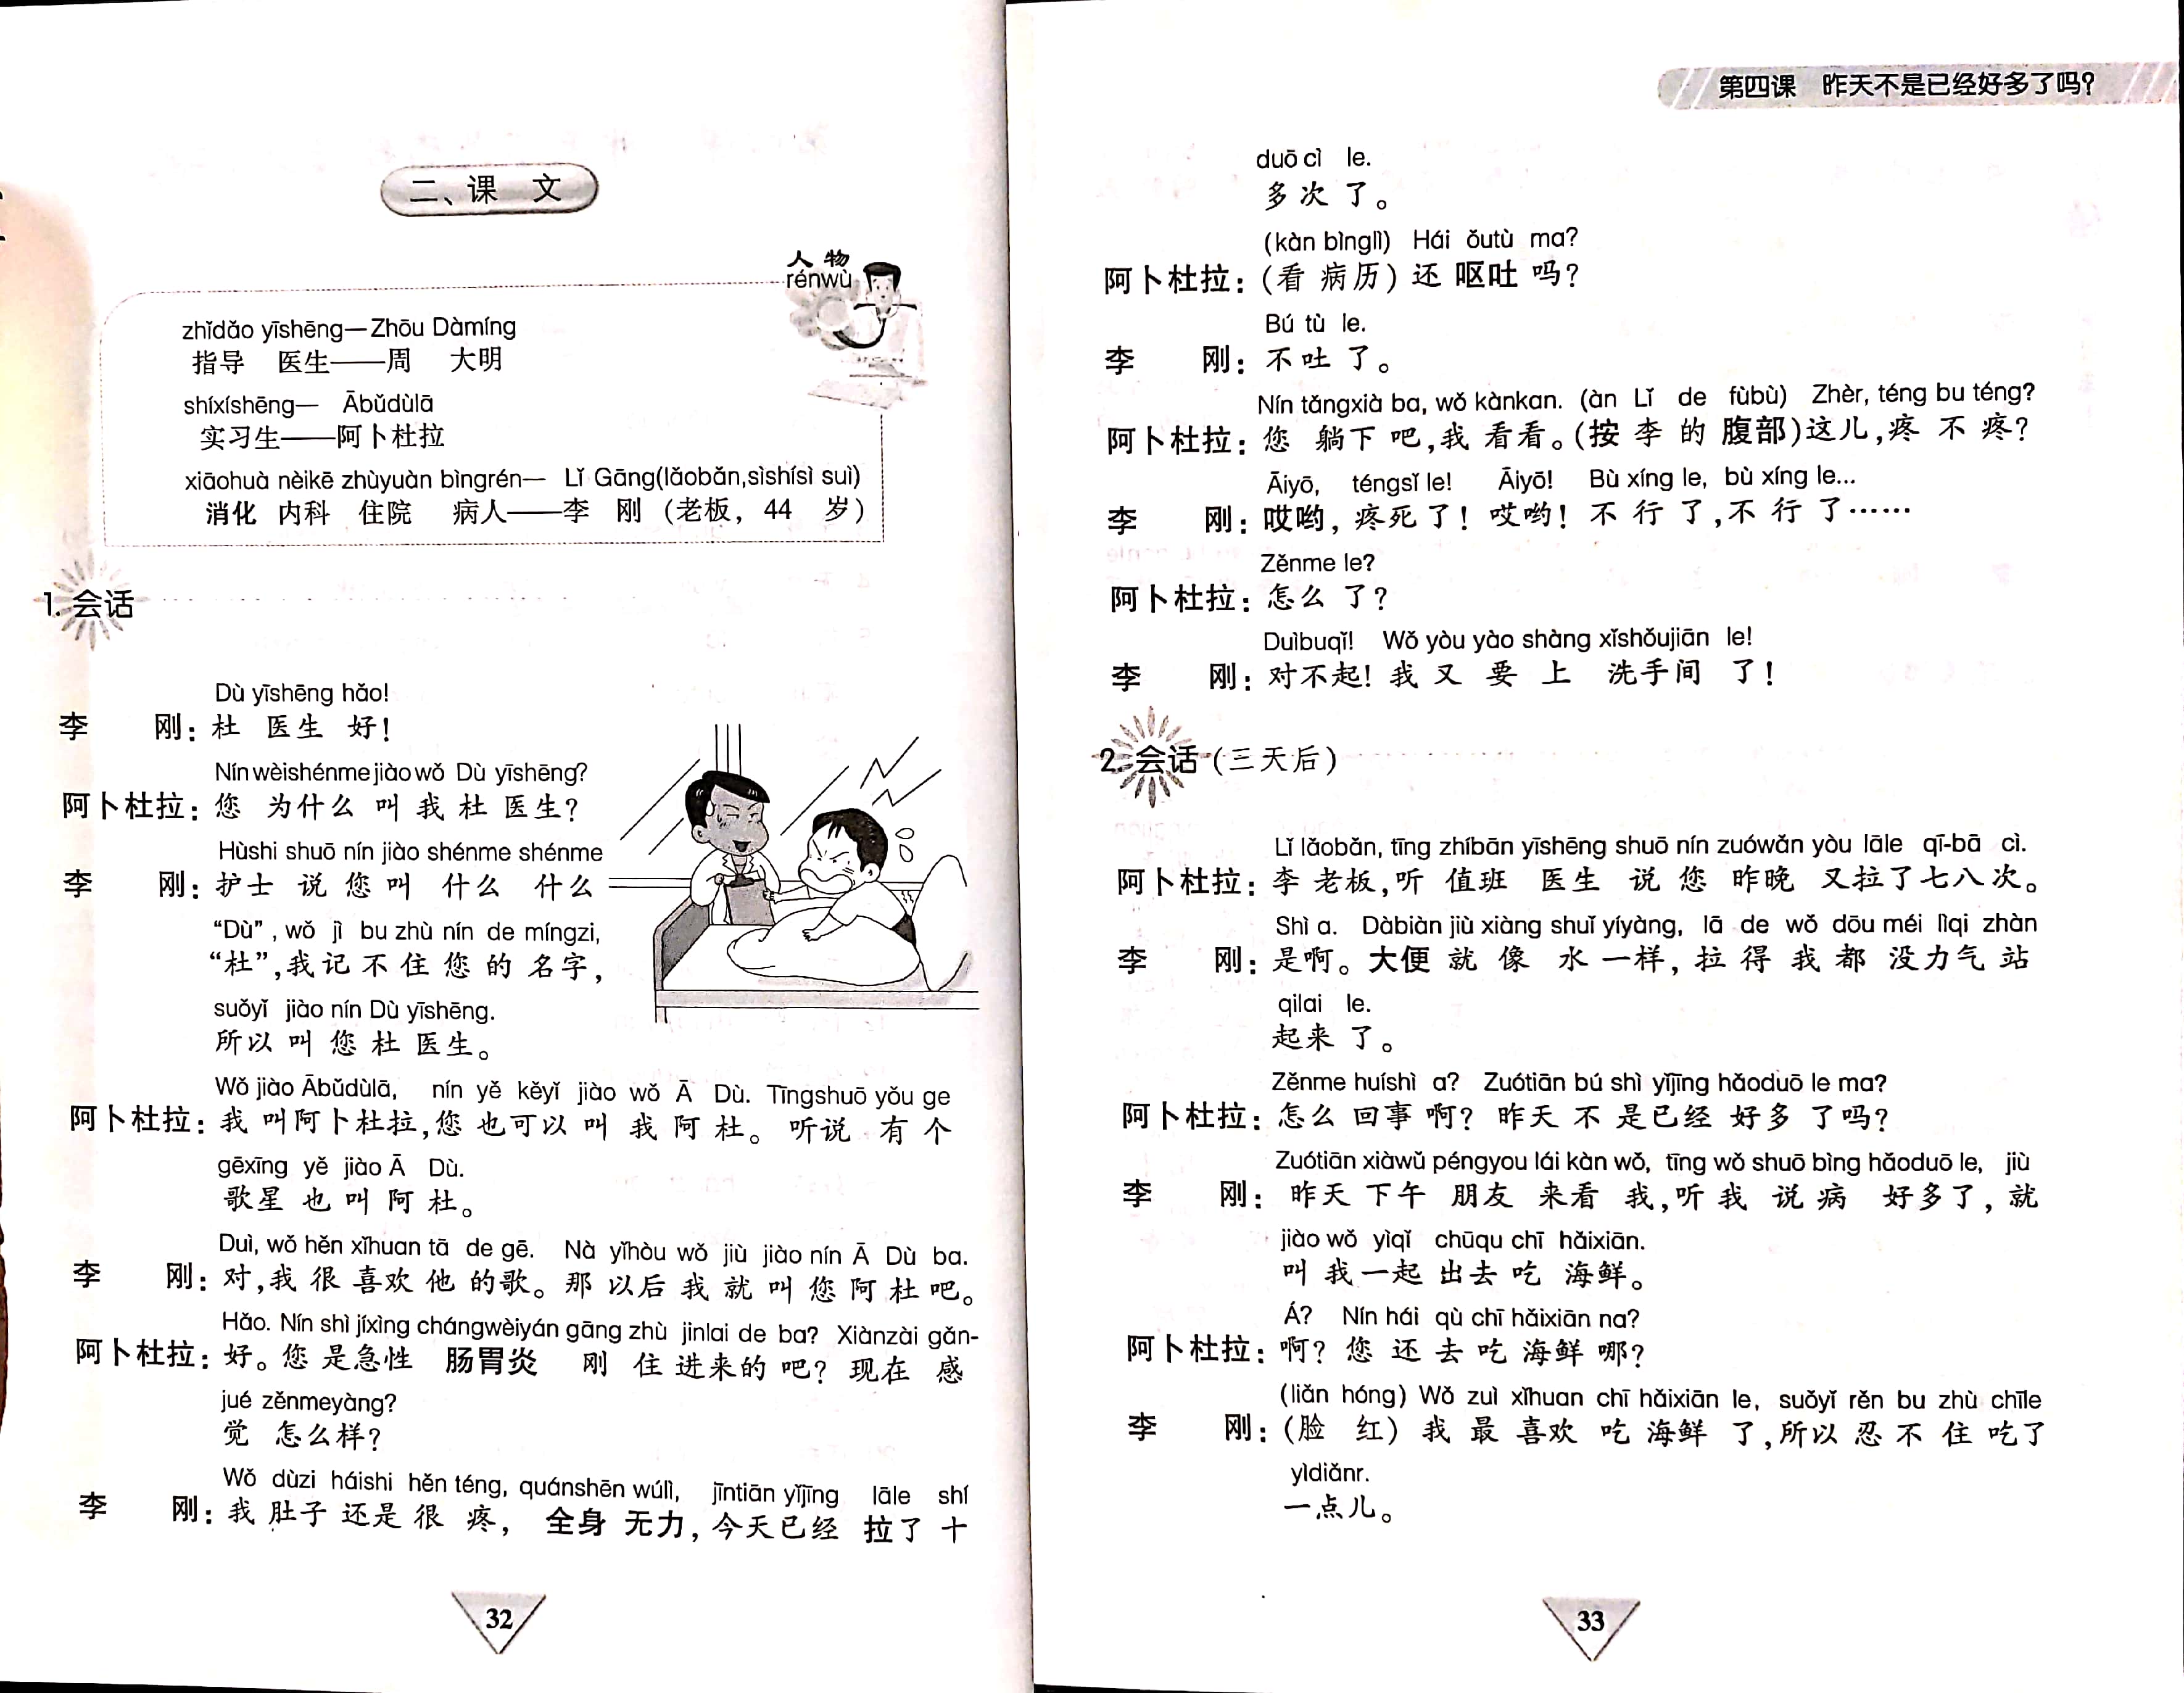 二、课 文
人 物
rénwù
zhǐdǎo yīshēng—Zhōu Dàmíng
指导 医生——周 大明
shíxíshēng— Ābǔdùlā
实习生——阿卜杜拉
xiāohuà nèikē zhùyuàn bìngrén— Lǐ Gāng(lǎobǎn,sìshísì suì)
消化 内科 住院 病人——李 刚 (老板, 44 岁)
1. 会话
Dù yīshēng hǎo!
李 刚: 杜 医生 好!
Nín wèishénme jiào wǒ Dù yīshēng?
阿卜杜拉: 您 为什么 叫 我 杜 医生?
Hùshi shuō nín jiào shénme shénme
李 刚: 护士 说 您 叫 什么 什么
“Dù”, wǒ jì bu zhù nín de míngzi,
“杜”,我 记 不 住 您 的 名字,
suǒyǐ jiào nín Dù yīshēng.
所以 叫 您 杜 医生。
Wǒ jiào Ābǔdùlā, nín yě kěyǐ jiào wǒ Ā Dù. Tīngshuō yǒu ge
阿卜杜拉: 我 叫阿卜杜拉,您 也可以 叫 我 阿 杜。 听说 有 个
gēxīng yě jiào Ā Dù.
歌星 也 叫 阿 杜。
Duì, wǒ hěn xǐhuan tā de gē. Nà yǐhòu wǒ jiù jiào nín Ā Dù ba.
李 刚: 对,我 很 喜欢 他 的歌。那 以后 我 就 叫 您 阿 杜 吧。
Hǎo. Nín shì jíxìng chángwèiyán gāng zhù jìnlai de ba? Xiànzài gǎn-
阿卜杜拉: 好。您 是急性 肠胃炎 刚 住 进来的 吧? 现在 感
jué zěnmeyàng?
觉 怎么样?
Wǒ dùzi háishi hěn téng, quánshēn wúlì, jīntiān yǐjīng lāle shí
李 刚: 我 肚子 还是 很 疼, 全身 无力, 今天已经 拉了 十
32
第四课 昨天不是已经好多了吗?
duō cì le.
多 次 了。
(kàn bìnglì) Hái ǒutù ma?
阿卜杜拉: (看 病历) 还 呕吐 吗?
Bú tù le.
李 刚: 不 吐 了。
Nín tǎngxià ba, wǒ kànkan. (àn Lǐ de fùbù) Zhèr, téng bu téng?
阿卜杜拉: 您 躺下 吧,我 看看。(按 李 的 腹部)这儿,疼 不 疼?
Āiyō, téngsǐ le! Āiyō! Bù xíng le, bù xíng le...
李 刚: 哎哟, 疼死 了! 哎哟! 不 行 了,不 行 了……
Zěnme le?
阿卜杜拉: 怎么 了?
Duìbuqǐ! Wǒ yòu yào shàng xǐshǒujiān le!
李 刚: 对不起! 我 又 要 上 洗手间 了!
2. 会话 (三天后)
Lǐ lǎobǎn, tīng zhíbān yīshēng shuō nín zuówǎn yòu lāle qī-bā cì.
阿卜杜拉: 李 老板,听 值班 医生 说 您 昨晚 又拉了七八 次。
Shì a. Dàbiàn jiù xiàng shuǐ yíyàng, lā de wǒ dōu méi lìqi zhàn
李 刚: 是啊。大便 就 像 水 一样, 拉 得 我 都 没力气 站
qilai le.
起来 了。
Zěnme huíshì a? Zuótiān bú shì yǐjīng hǎoduō le ma?
阿卜杜拉: 怎么 回事 啊? 昨天 不 是已经 好多 了吗?
Zuótiān xiàwǔ péngyou lái kàn wǒ, tīng wǒ shuō bìng hǎoduō le, jiù
李 刚: 昨天 下午 朋友 来看 我,听 我 说 病 好多了, 就
jiào wǒ yìqǐ chūqu chī hǎixiān.
叫 我 一起 出去 吃 海鲜。
Á? Nín hái qù chī hǎixiān na?
阿卜杜拉: 啊? 您 还 去 吃 海鲜 哪?
(liǎn hóng) Wǒ zuì xǐhuan chī hǎixiān le, suǒyǐ rěn bu zhù chīle
李 刚: (脸 红) 我 最 喜欢 吃 海鲜 了,所以 忍 不 住 吃了
yìdiǎnr.
一点儿。
33